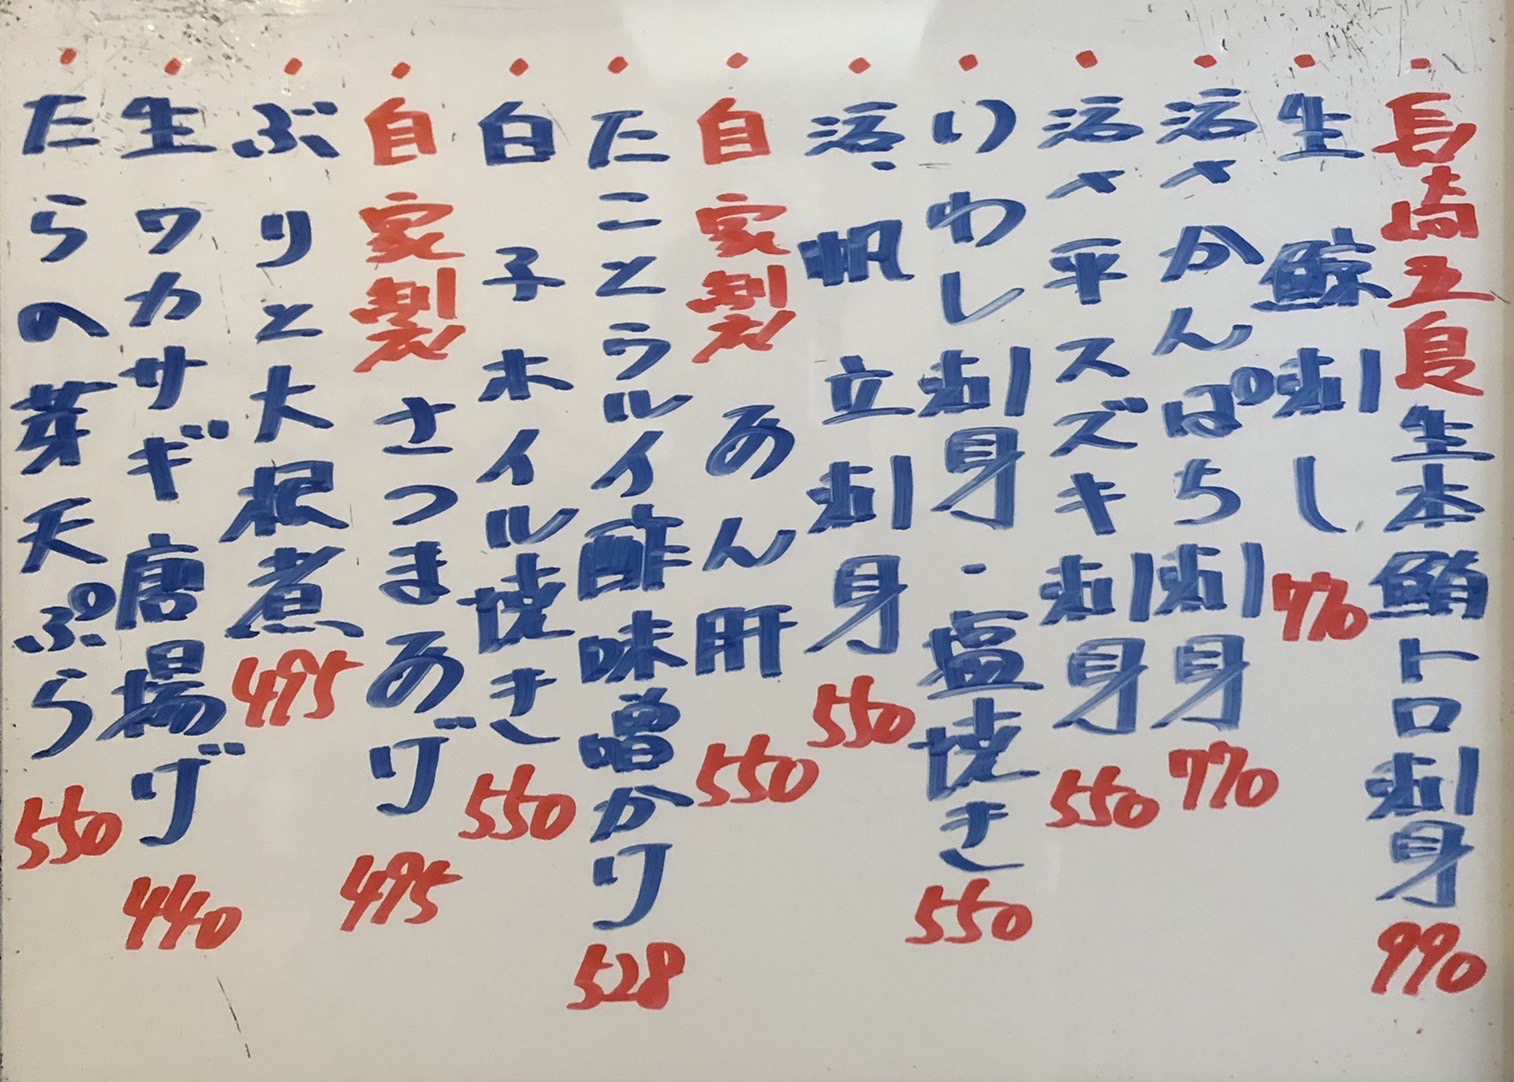 ・長崎五島生本鮪トロ刺身 990
・生鯨刺し 770
・活〆かんぱち刺身 770
・活〆平スズキ刺身 550
・いわし刺身・塩焼き 550
・活、帆立刺身 550
・自家製あん肝 550
・たことウルイ酢味噌かけ 528
・白子ホイル焼き 550
・自家製さつまあげ 495
・ぶりと大根煮 495
・生ワカサギ唐揚げ 440
・たらの芽天ぷら 550